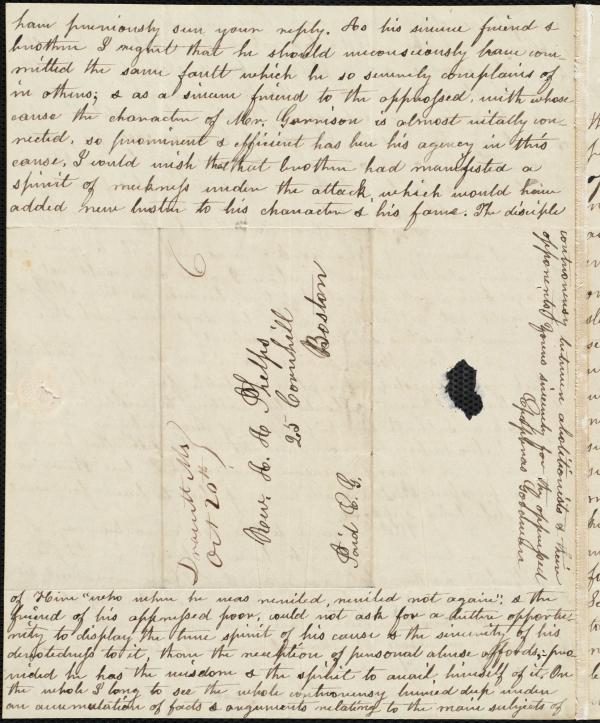 have previously seen your reply. As his sincere friend &
brother I regret that he should unconsciously have com-
mitted the same fault which he so severely complains of
in others; & as a sincere friend to the oppressed, with whose
cause the character of Mr. Garrison is almost vitally con-
nected, so prominent & efficient has been his agency in this
cause, I would wish that that brother had manifested a
spirit of meekness under the attack, which would have
added new luster to his character & his fame. The disciple
of Him "who when he was reviled, reviled not again"; & the
friend of his oppressed poor, could not ask for a better opportu-
nity to display the true spirit of his cause & the sincerity of his
devotedness to it, than the reception of personal abuse affords, pro-
vided he has the wisdom & the spirit to avail himself of it. On
the whole I long to see the whole controversy buried deep under
an accumulation of facts & arguments relating to the main subjects of
controversy between abolitionists & their
opponents. Yours sincerely for the oppressed
Epaphras Goodman
6
Dracutt Ms
Oct 20th
Rev. A. A. Phelps
25 Cornhill
Boston
Paid E. G.